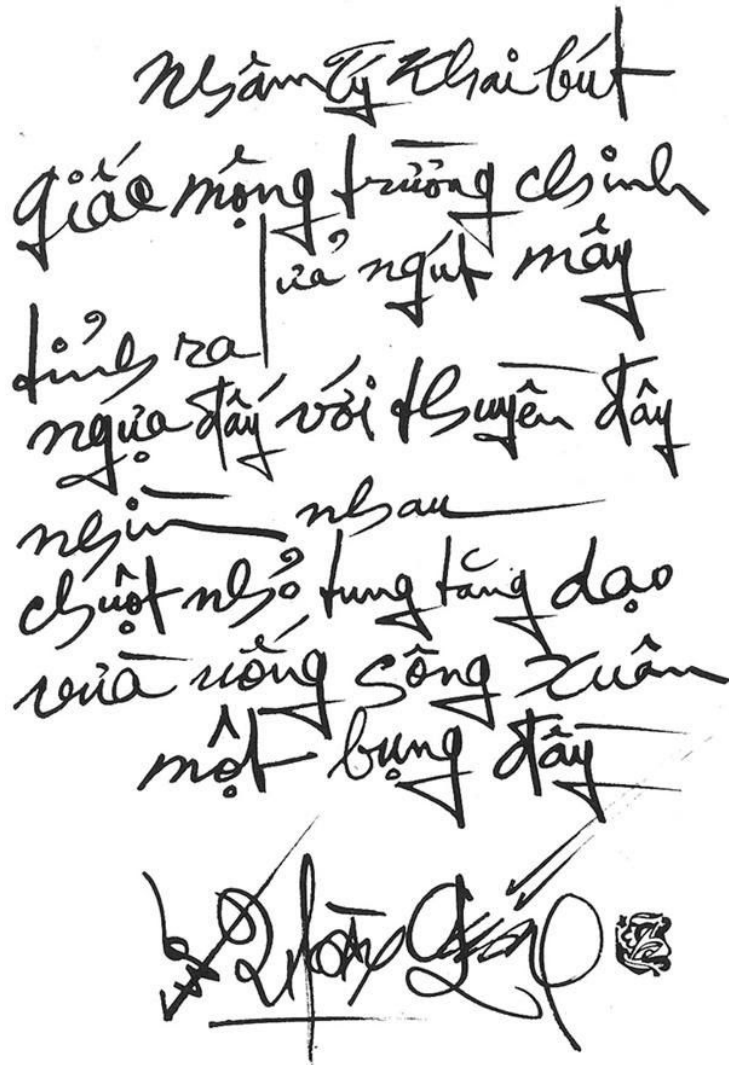 Nhâm Tý Khai bút
giấc mộng trường chinh
lửa ngút mây
tỉnh ra
ngựa đấy với thuyền đây
nhìn nhau
chuột nhỏ tung tăng dạo
vừa uống sông Xuân
một bụng đầy